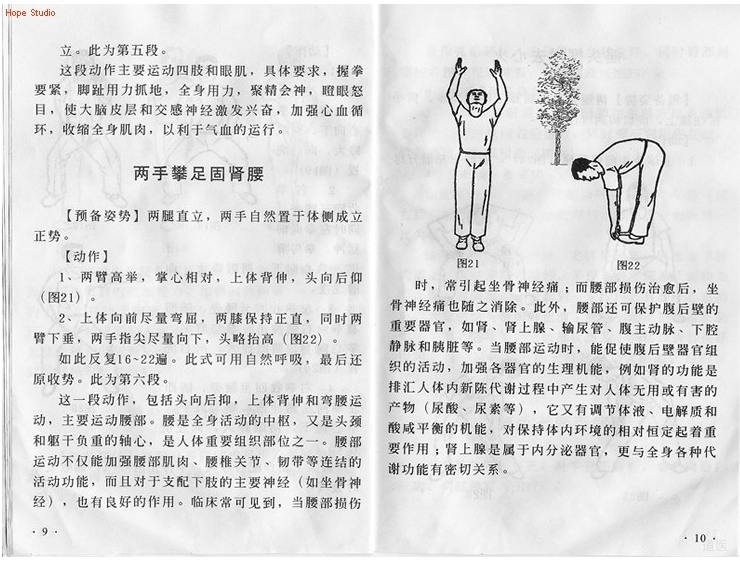 Hope Studio
立。此为第五段。
这段动作主要运动四肢和眼肌，具体要求，握拳
要紧，脚趾用力抓地，全身用力，聚精会神，瞪眼怒
目，使大脑皮层和交感神经激发兴奋，加强心血循
环，收缩全身肌肉，以利于气血的运行。
两手攀足固肾腰
【预备姿势】两腿直立，两手自然置于体侧成立
正势。
【动作】
1、两臂高举，掌心相对，上体背伸，头向后仰
（图21）。
2、上体向前尽量弯屈，两膝保持正直，同时两
臂下垂，两手指尖尽量向下，头略抬高（图22）。
如此反复16~22遍。此式可用自然呼吸，最后还
原收势。此为第六段。
这一段动作，包括头向后抑，上体背伸和弯腰运
动，主要运动腰部。腰是全身活动的中枢，又是头颈
和躯干负重的轴心，是人体重要组织部位之一。腰部
运动不仅能加强腰部肌肉、腰椎关节、韧带等连结的
活动功能，而且对于支配下肢的主要神经（如坐骨神
经），也有良好的作用。临床常可见到，当腰部损伤
·9·
图21
图22
时，常引起坐骨神经痛；而腰部损伤治愈后，坐
骨神经痛也随之消除。此外，腰部还可保护腹后壁的
重要器官，如肾、肾上腺、输尿管、腹主动脉、下腔
静脉和胰脏等。当腰部运动时，能促使腹后壁器官组
织的活动，加强各器官的生理机能，例如肾的功能是
排汇人体内新陈代谢过程中产生对人体无用或有害的
产物（尿酸、尿素等），它又有调节体液、电解质和
酸咸平衡的机能，对保持体内环境的相对恒定起着重
要作用；肾上腺是属于内分泌器官，更与全身各种代
谢功能有密切关系。
·10·
道医